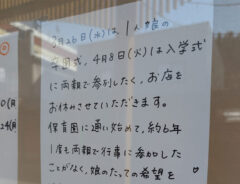 3月26日(水)は1人娘の
卒園式、4月8日(火)は入学式
に両親で参列したく、お店を
お休みさせていただきます。
保育園に通い始めて、約6年
1度も両親で行事に参加した
ことがなく、娘のたっての希望を
0(月
24(月